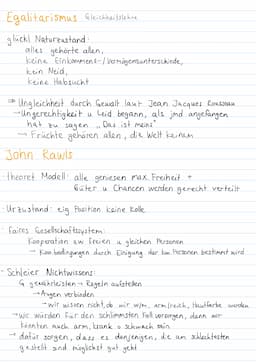 Egalitarismus Gleichheitslehre
glückl Naturzustand:
alles gehörte allen,
keine Einkommens-/Vermögensunterschiede,
kein Neid,
keine Habsucht
⇒ Ungleichheit durch Gewalt laut Jean Jacques Rousseau
→ Ungerechtigkeit u Leid begann, als jmd angefangen
hat zu sagen „Das ist meins"
→ Früchte gehören allen, die Welt keinem
John Rawls
· theoret Modell: alle geniesen max. Freiheit +
Güter u Chancen werden gerecht verteilt
· Urzustand: eig Position keine Rolle
· faires Gesellschaftssystem:
Kooperation zw freien u gleichen Personen
→ Koop bedingungen durch Einigung der bet Personen bestimmt wird
· Schleier Nichtwissens:
G gewährleisten → Regeln aufstellen
→ Augen verbinden
→ wir wissen nicht, ob wir w/m, arm/reich, Hautfarbe wurden
→ wir würden für den schlimmsten Fall vorsorgen, denn wir
könnten auch arm, krank o schwach sein
→ dafür sorgen, dass es denjenigen, die am schlechtesten
gestellt sind möglichst gut geht